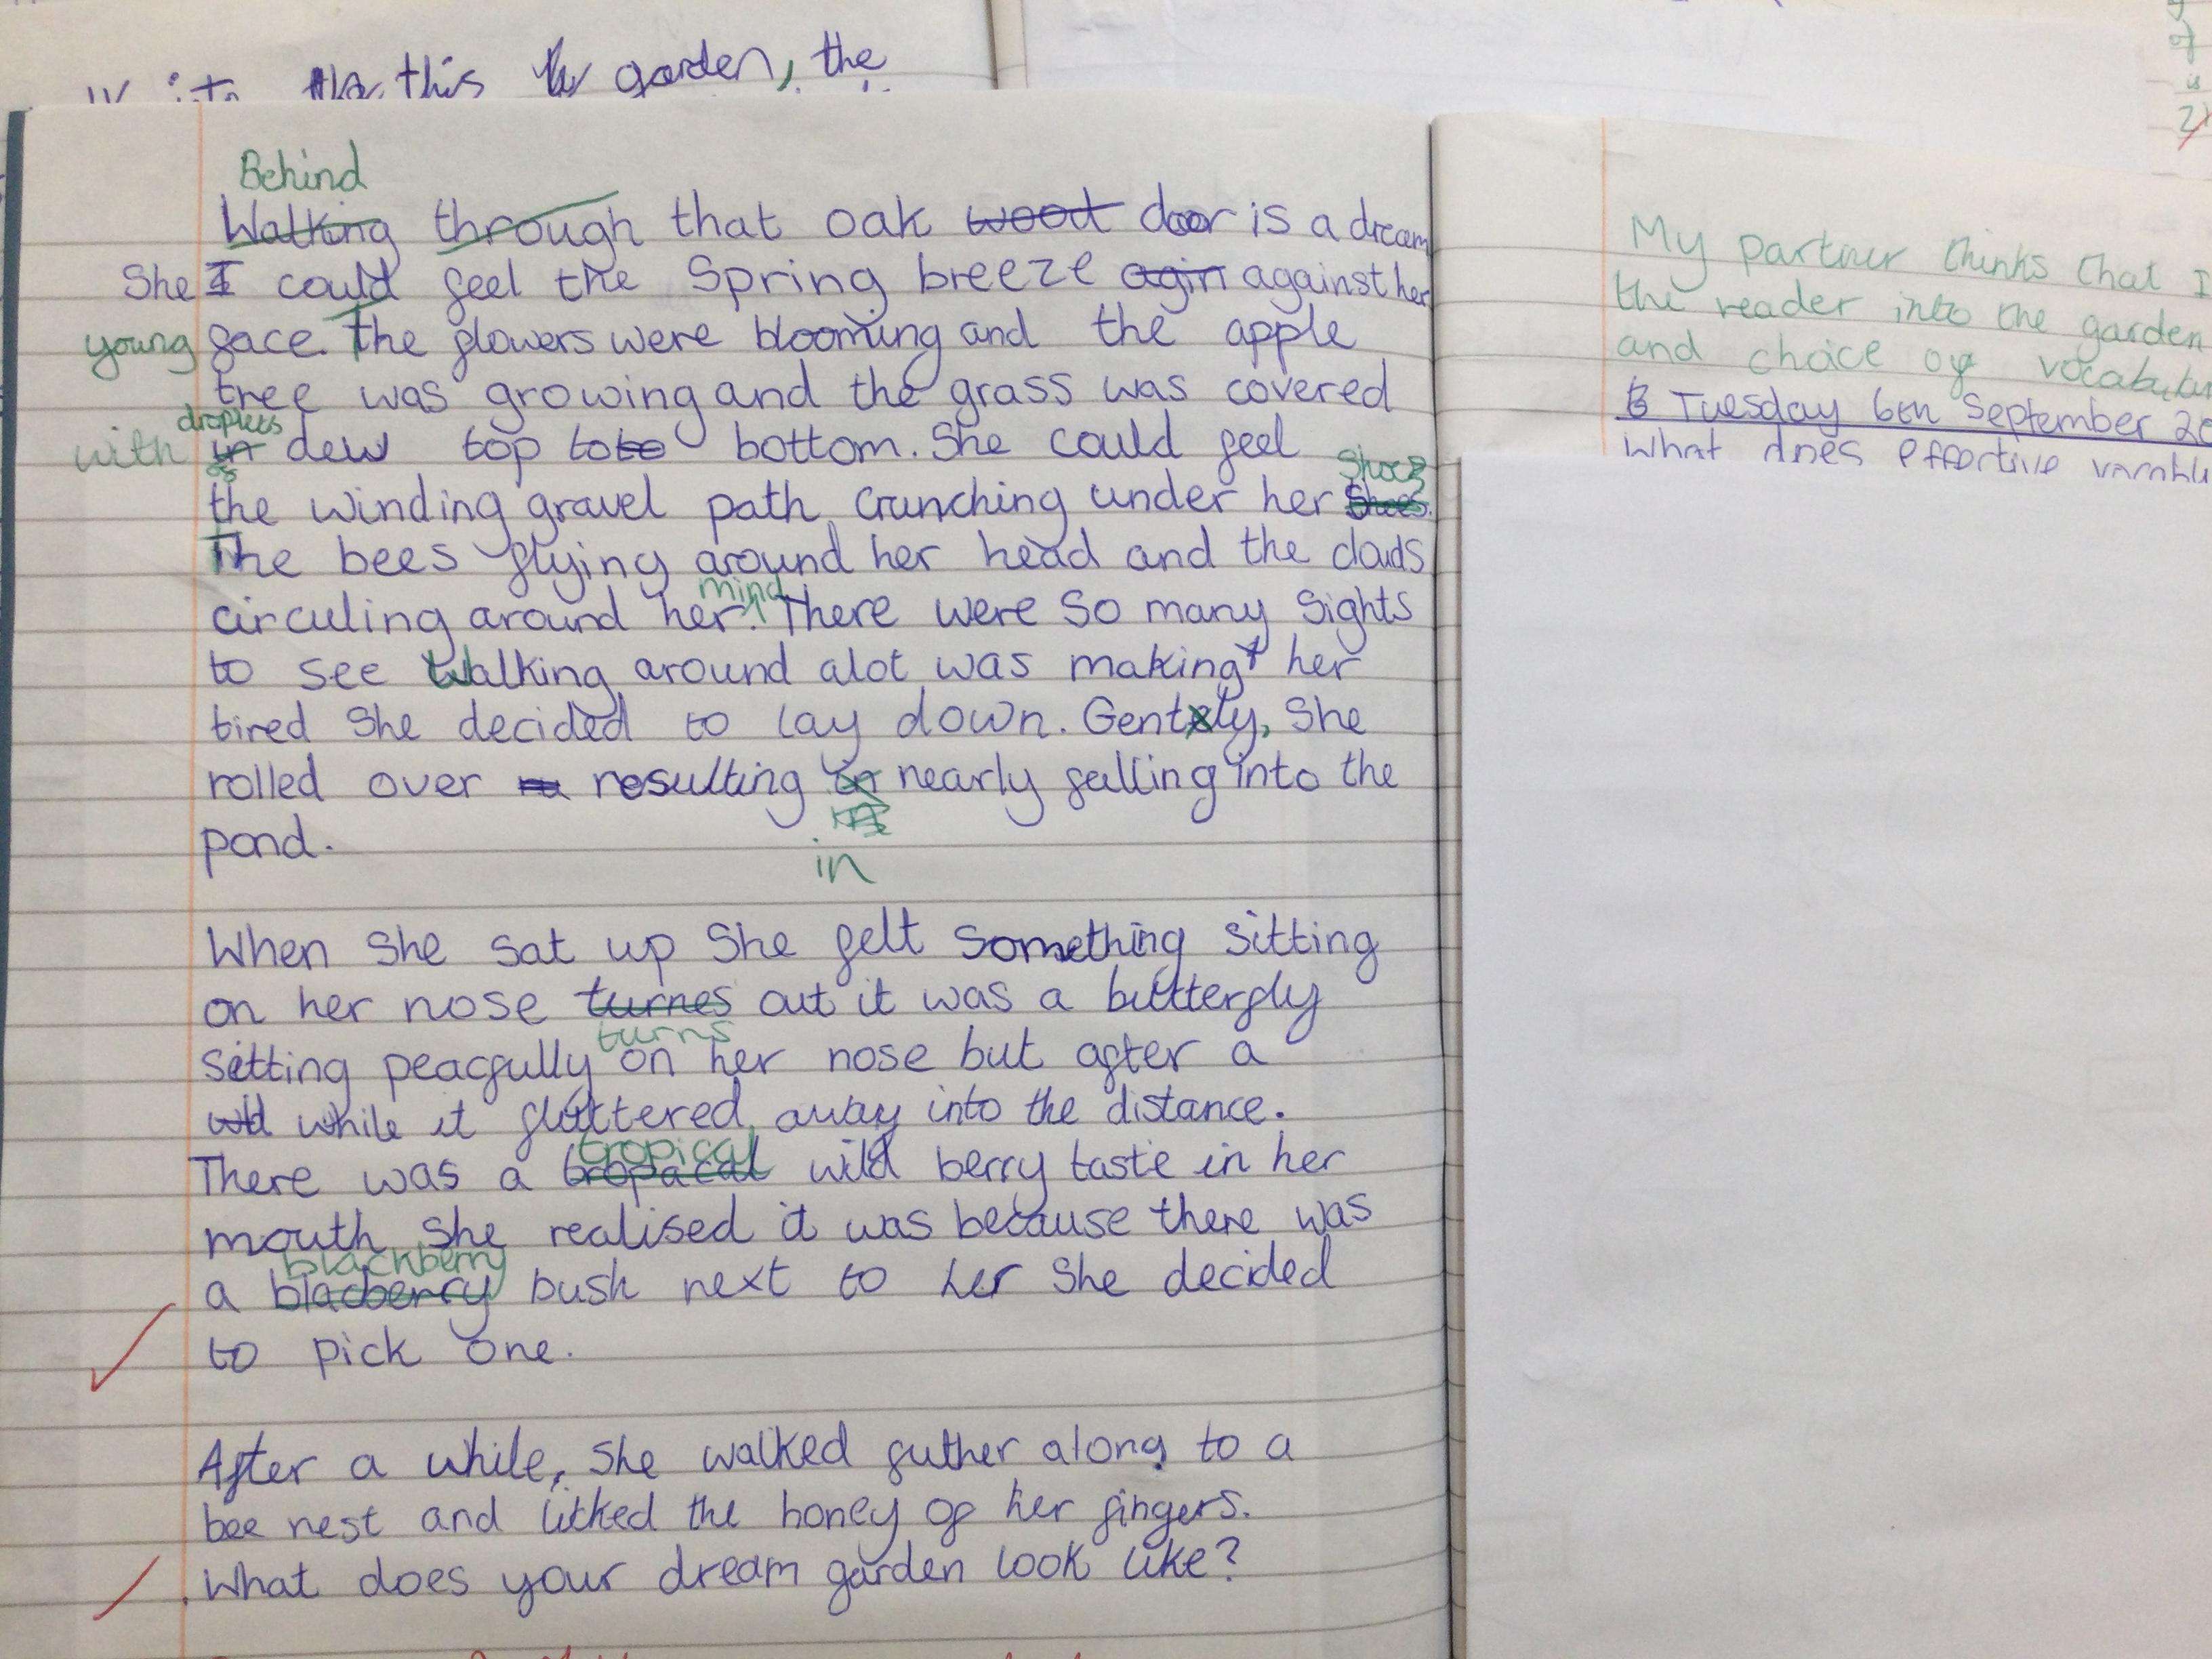 this garden, the
Behind
Walking through that oak wood door is a dream
She I could feel the Spring breeze agin against her
young face. The flowers were blooming and the apple
tree was growing and the grass was covered
droplets
with in dew top to to bottom. She could feel
of
shoes
the winding gravel path crunching under her shoes.
The bees flying around her head and the clouds
mind
circuling around her. There were so many sights
to see Walking around alot was making her
tired she decided to lay down. Gently, she
rolled over resulting on nearly falling into the
in
pond.
When she sat up she felt something sitting
on her nose turnes out it was a butterfly
turns
sitting peacfully on her nose but after a
while it fluttered away into the distance.
tropical
There was a tropacal wild berry taste in her
mouth she realised it was because there was
blackberry
a blacberry bush next to her she decided
to pick one.
After a while, she walked futher along to a
bee nest and licked the honey of her fingers.
What does your dream garden look like?
My partner thinks that I
the reader into the garden
and choice of
Tuesday 6th September 20
What does effective